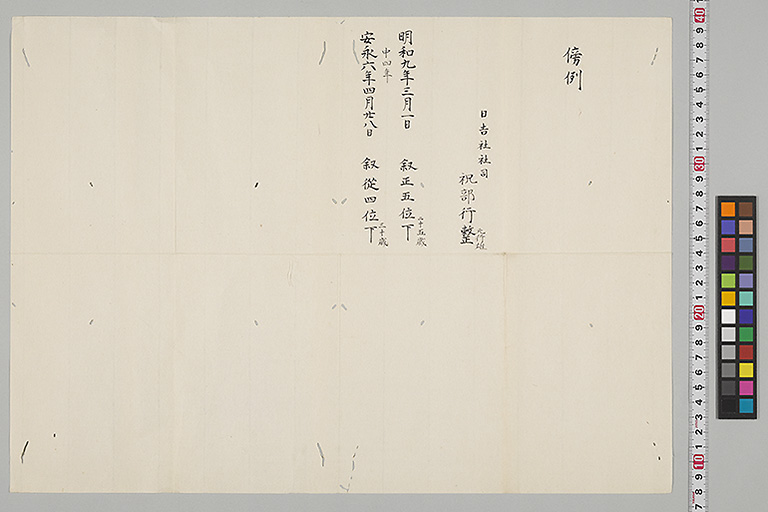 傍例
日吉社社司
祝部行整
明和九年三月一日 叙正五位下 二十五歳
中四年
安永六年四月廿八日 叙從四位下 三十歳